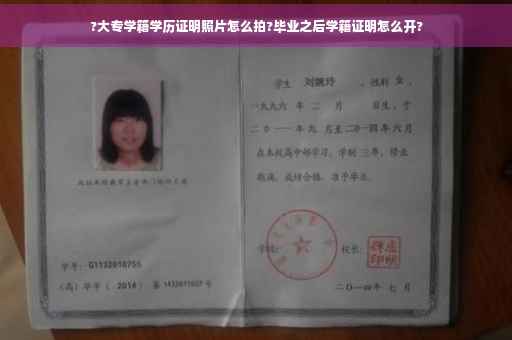 ?大专学籍学历证明照片怎么拍?毕业之后学籍证明怎么开?
学生 刘婉玲 ，性别 女 ，
一九九六 年 二 月 日生，于
二〇一一年九 月至二〇一四年六月
在本校高中部学习，学制 三年，修业
期满，成绩合格，准予毕业。
学号： G1132010755
学校：
校长：
(高) 毕字（ 2014 ）第 1432011007 号
二〇一四年 七 月